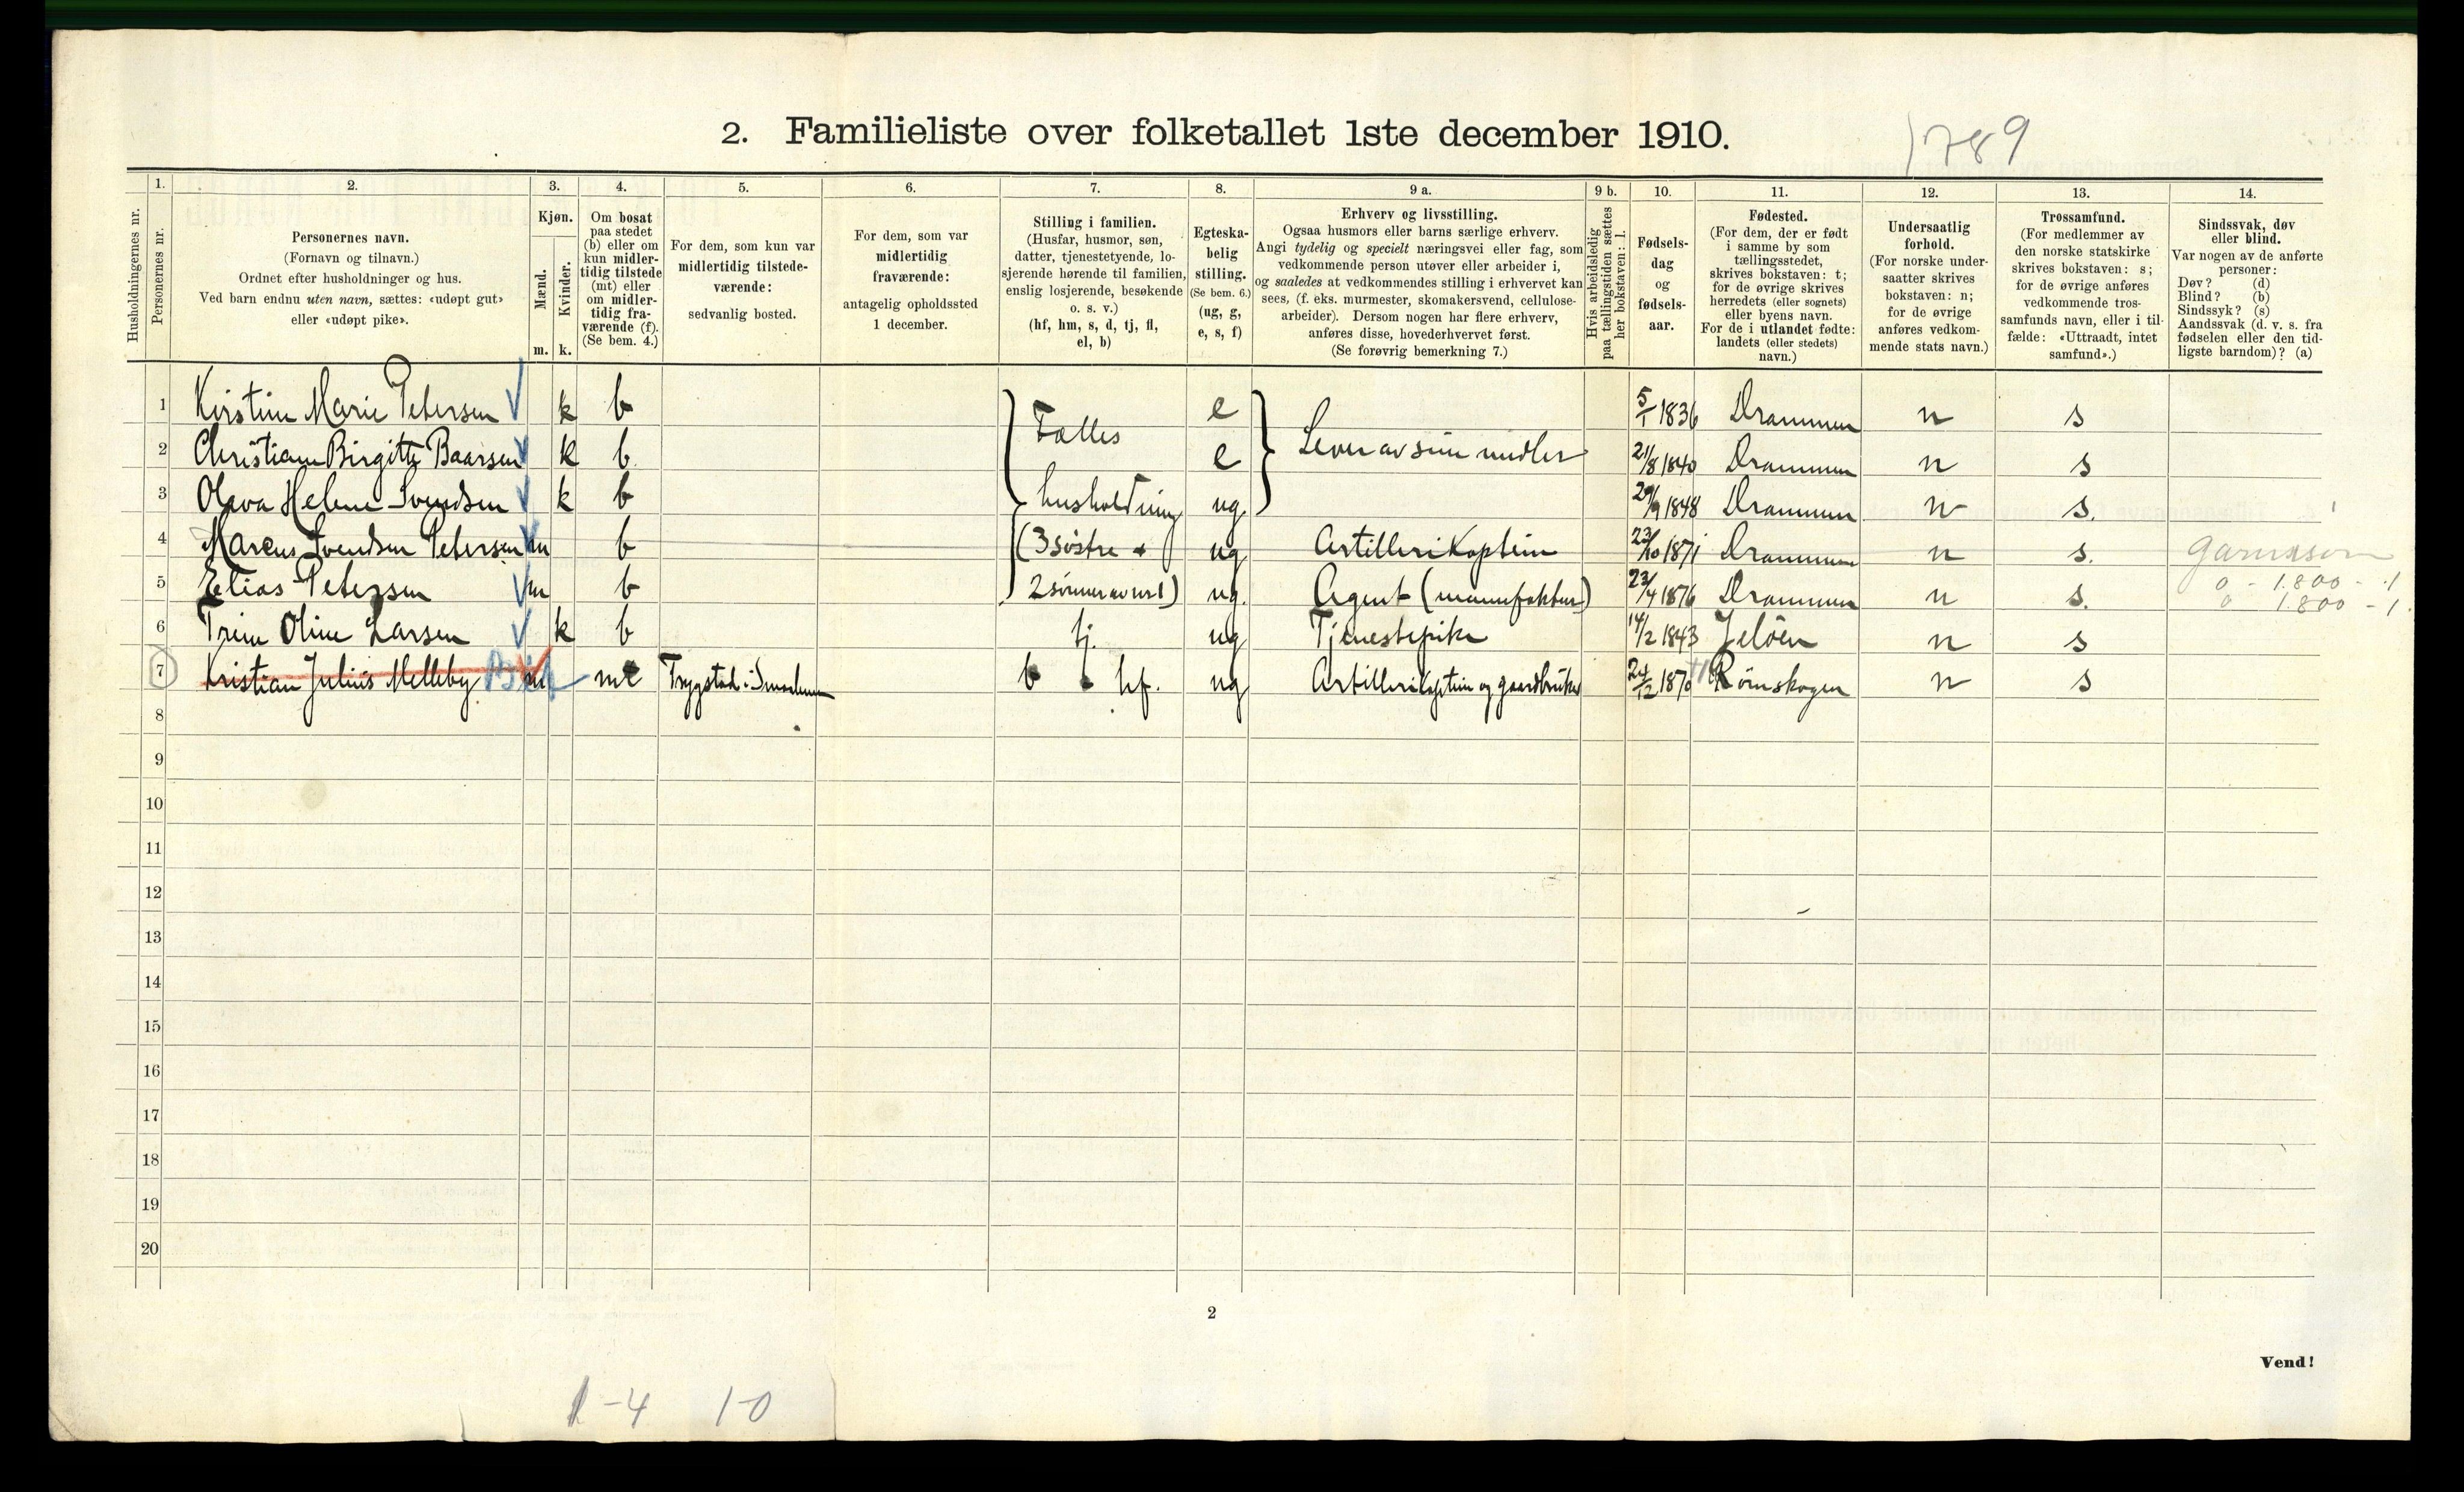 2. Familieliste over folketallet 1ste december 1910.
1789
Husholdningernes nr.
1.
Personernes nr.
2.
Personernes navn.
(Fornavn og tilnavn.)
Ordnet efter husholdninger og hus.
Ved barn endnu uten navn, sættes: «udøpt gut»
eller «udøpt pike».
3.
Kjøn.
Mænd.
Kvinder.
m. k.
4.
Om bosat
paa stedet
(b) eller om
kun midler-
tidig tilstede
(mt) eller
om midler-
tidig fra-
værende (f).
(Se bem. 4.)
5.
For dem, som kun var
midlertidig tilstede-
værende:
sedvanlig bosted.
6.
For dem, som var
midlertidig
fraværende:
antagelig opholdssted
1 december.
7.
Stilling i familien.
(Husfar, husmor, søn,
datter, tjenestetyende, lo-
sjerende hørende til familien,
enslig losjerende, besøkende
o. s. v.)
(hf, hm, s, d, tj, fl,
el, b)
8.
Egteska-
belig
stilling.
(Se bem. 6.)
(ug, g,
e, s, f)
9 a.
Erhverv og livsstilling.
Ogsaa husmors eller barns særlige erhverv.
Angi tydelig og specielt næringsvei eller fag, som
vedkommende person utøver eller arbeider i,
og saaledes at vedkommendes stilling i erhvervet kan
sees, (f. eks. murmester, skomakersvend, cellulose-
arbeider). Dersom nogen har flere erhverv,
anføres disse, hovederhvervet først.
(Se forøvrig bemerkning 7.)
9 b.
Hvis arbeidsledig
paa tællingstiden sættes
her bokstaven: l.
10.
Fødsels-
dag
og
fødsels-
aar.
11.
Fødested.
(For dem, der er født
i samme by som
tællingsstedet,
skrives bokstaven: t;
for de øvrige skrives
herredets (eller sognets)
eller byens navn.
For de i utlandet fødte:
landets (eller stedets)
navn.)
12.
Undersaatlig
forhold.
(For norske under-
saatter skrives
bokstaven: n;
for de øvrige
anføres vedkom-
mende stats navn.)
13.
Trossamfund.
(For medlemmer av
den norske statskirke
skrives bokstaven: s;
for de øvrige anføres
vedkommende tros-
samfunds navn, eller i til-
fælde: «Uttraadt, intet
samfund».)
14.
Sindssvak, døv
eller blind.
Var nogen av de anførte
personer:
Døv? (d)
Blind? (b)
Sindssyk? (s)
Aandssvak (d. v. s. fra
fødselen eller den tid-
ligste barndom)? (a)
1 Kirstine Marie Petersen k b Fælles e Lever av sine midler 5/1 1836 Drammen n s
2 Christiane Birgitte Baarsen k b e 21/8 1840 Drammen n s
3 Olava Helene Svendsen k b husholdning ug. 29/9 1848 Drammen n s.
4 Marcus Svendsen Petersen m b (3 søstre + ug Artillerikaptein 23/10 1871 Drammen n s. Garnison
5 Elias Petersen m b 2 sønner av nr 1) ug. Agent (manufaktur) 23/4 1876 Drammen n s. 0 - 1.800 - 1
0 1.800 - 1.
6 Trine Oline Larsen k b tj. ug Tjenestepike 14/2 1843 Jeløen n s
7 Kristian Julius Melleby m mt Trygstad i Smaalenene b hf. ug Artillerikaptein og gaardbruker 24/12 1870 Rømskogen n s
8
9
10
11
12
13
14
15
16
17
18
19
20
2
Vend!
1-4 1-0